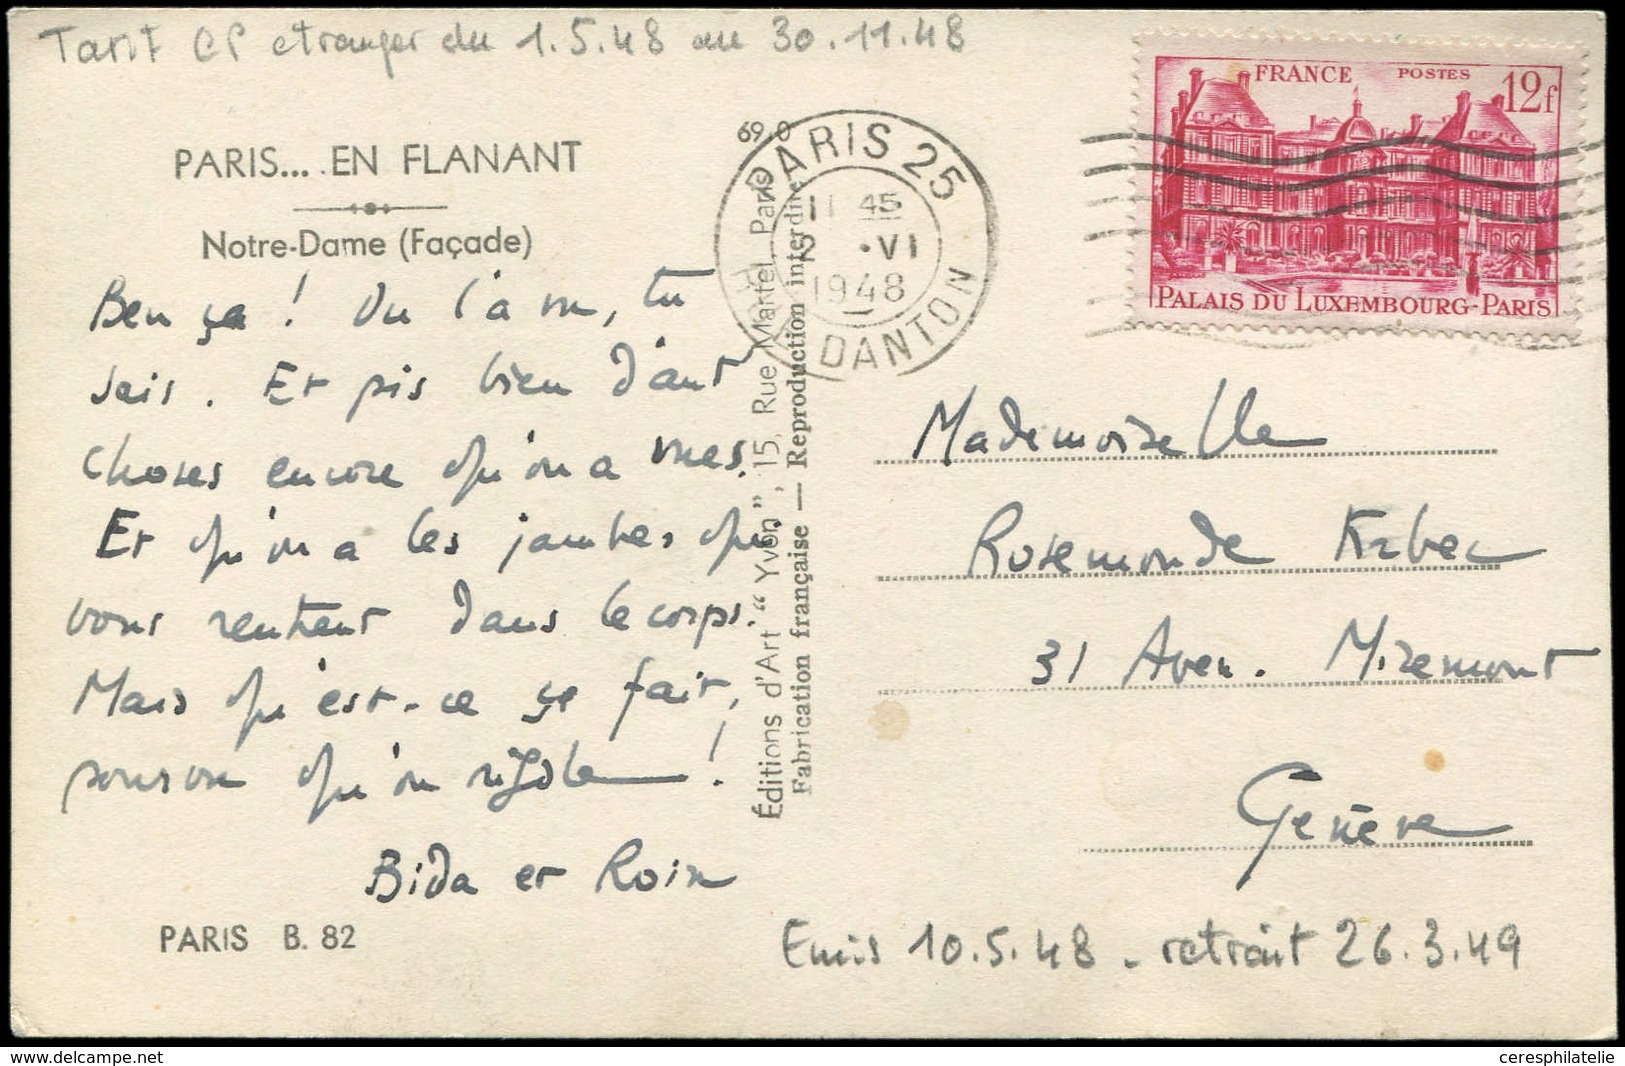 Tarif CP etranger du 1.5.48 au 30.11.48
FRANCE POSTES 12f
PALAIS DU LUXEMBOURG-PARIS
PARIS 25
11 45
2 .VI
1948
DANTON
69.0
PARIS... EN FLANANT
Notre-Dame (Façade)
Ben ça ! On l'a vu, tu
sais. Et pis bien d'aut'
choses encore qu'on a vues.
Et qu'on a les jambes qui
vous rentrent dans le corps.
Mais qu'est-ce ça fait,
pourvu qu'on rigole !
Bida et Roin
PARIS B. 82
Éditions d'Art "Yvon", 15, Rue Martel, Paris
Fabrication française — Reproduction interdite
Mademoiselle
Rosemonde
31 Aven. Miremont
Genève
Emis 10.5.48 - retrait 26.3.49
delcampe.net
ceresphilatelie